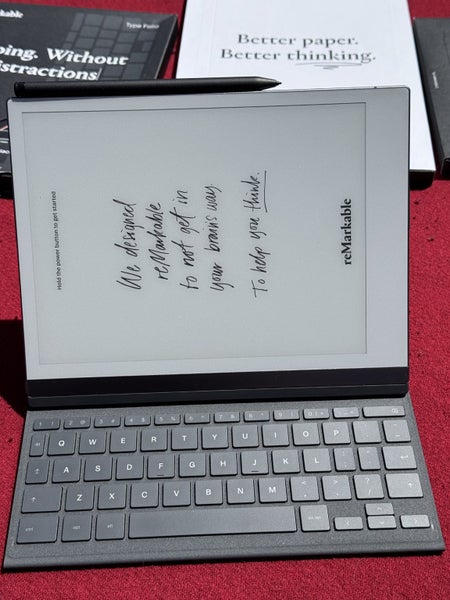 rkable
Type Folio
ping. Without
istractions
Better paper.
Better thinking.
Hold the power button to get started
We designed
reMarkable
to not get in
your brain's way.
To help you think.
reMarkable
Q W E R T Y U I O P
A S D F G H J K L
Z X C V B N M
ctrl opt alt